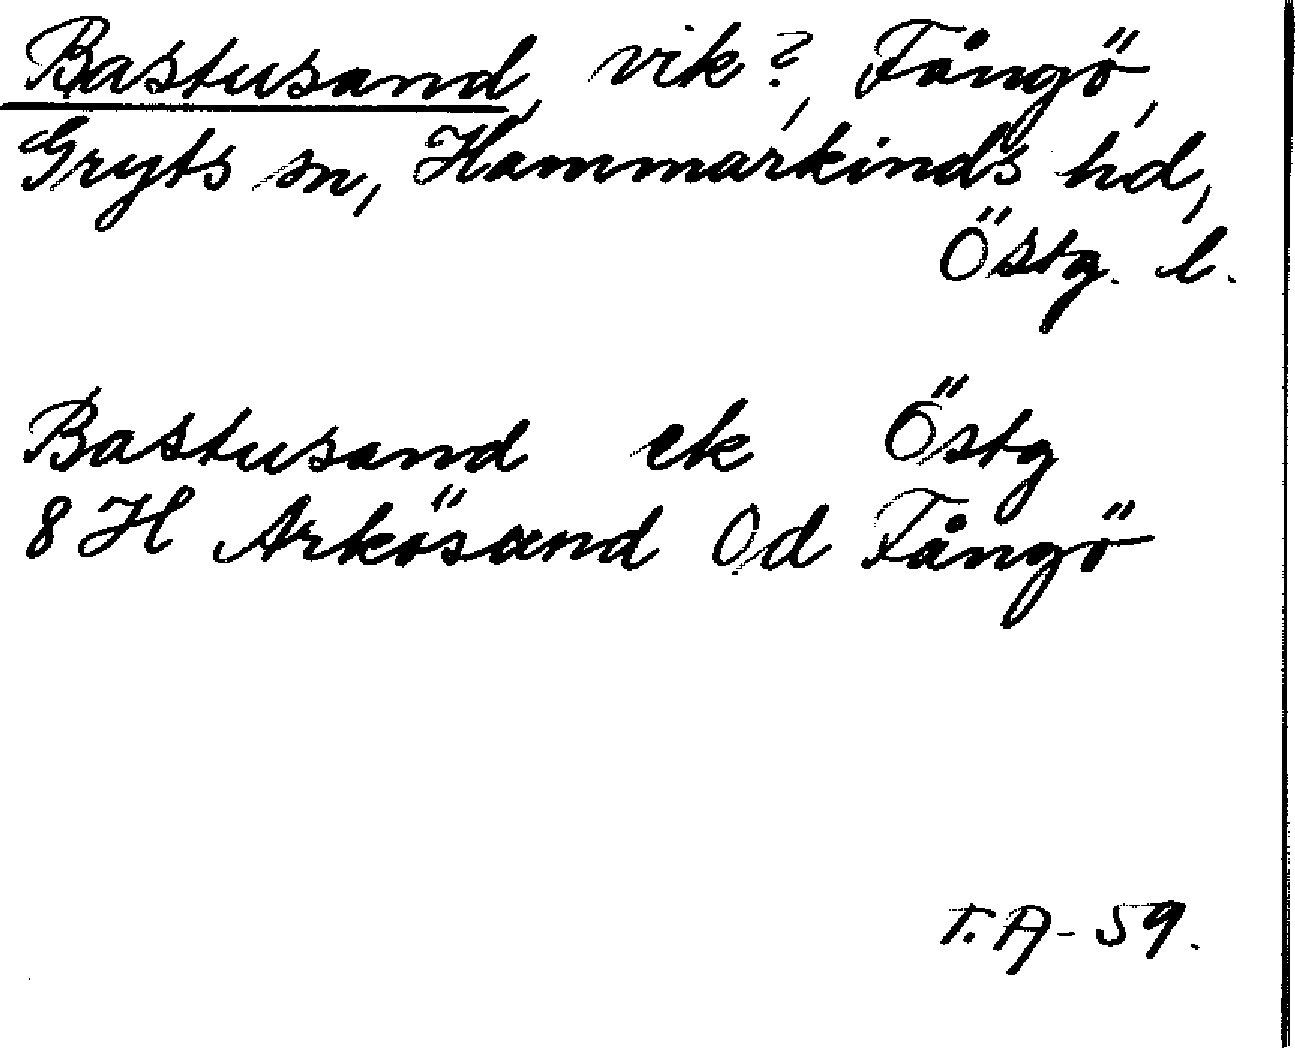 Bastusand, vik?, Fångö,
Gryts sn, Hammarkinds hd,
Östg. l.
Bastusand ek Östg
8 H Arkösund 0d Fångö
T.A-59.